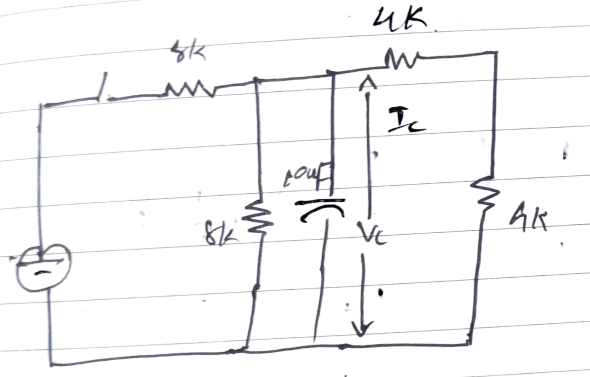 4K
8K
Ic
10uF
8K
Vc
4K